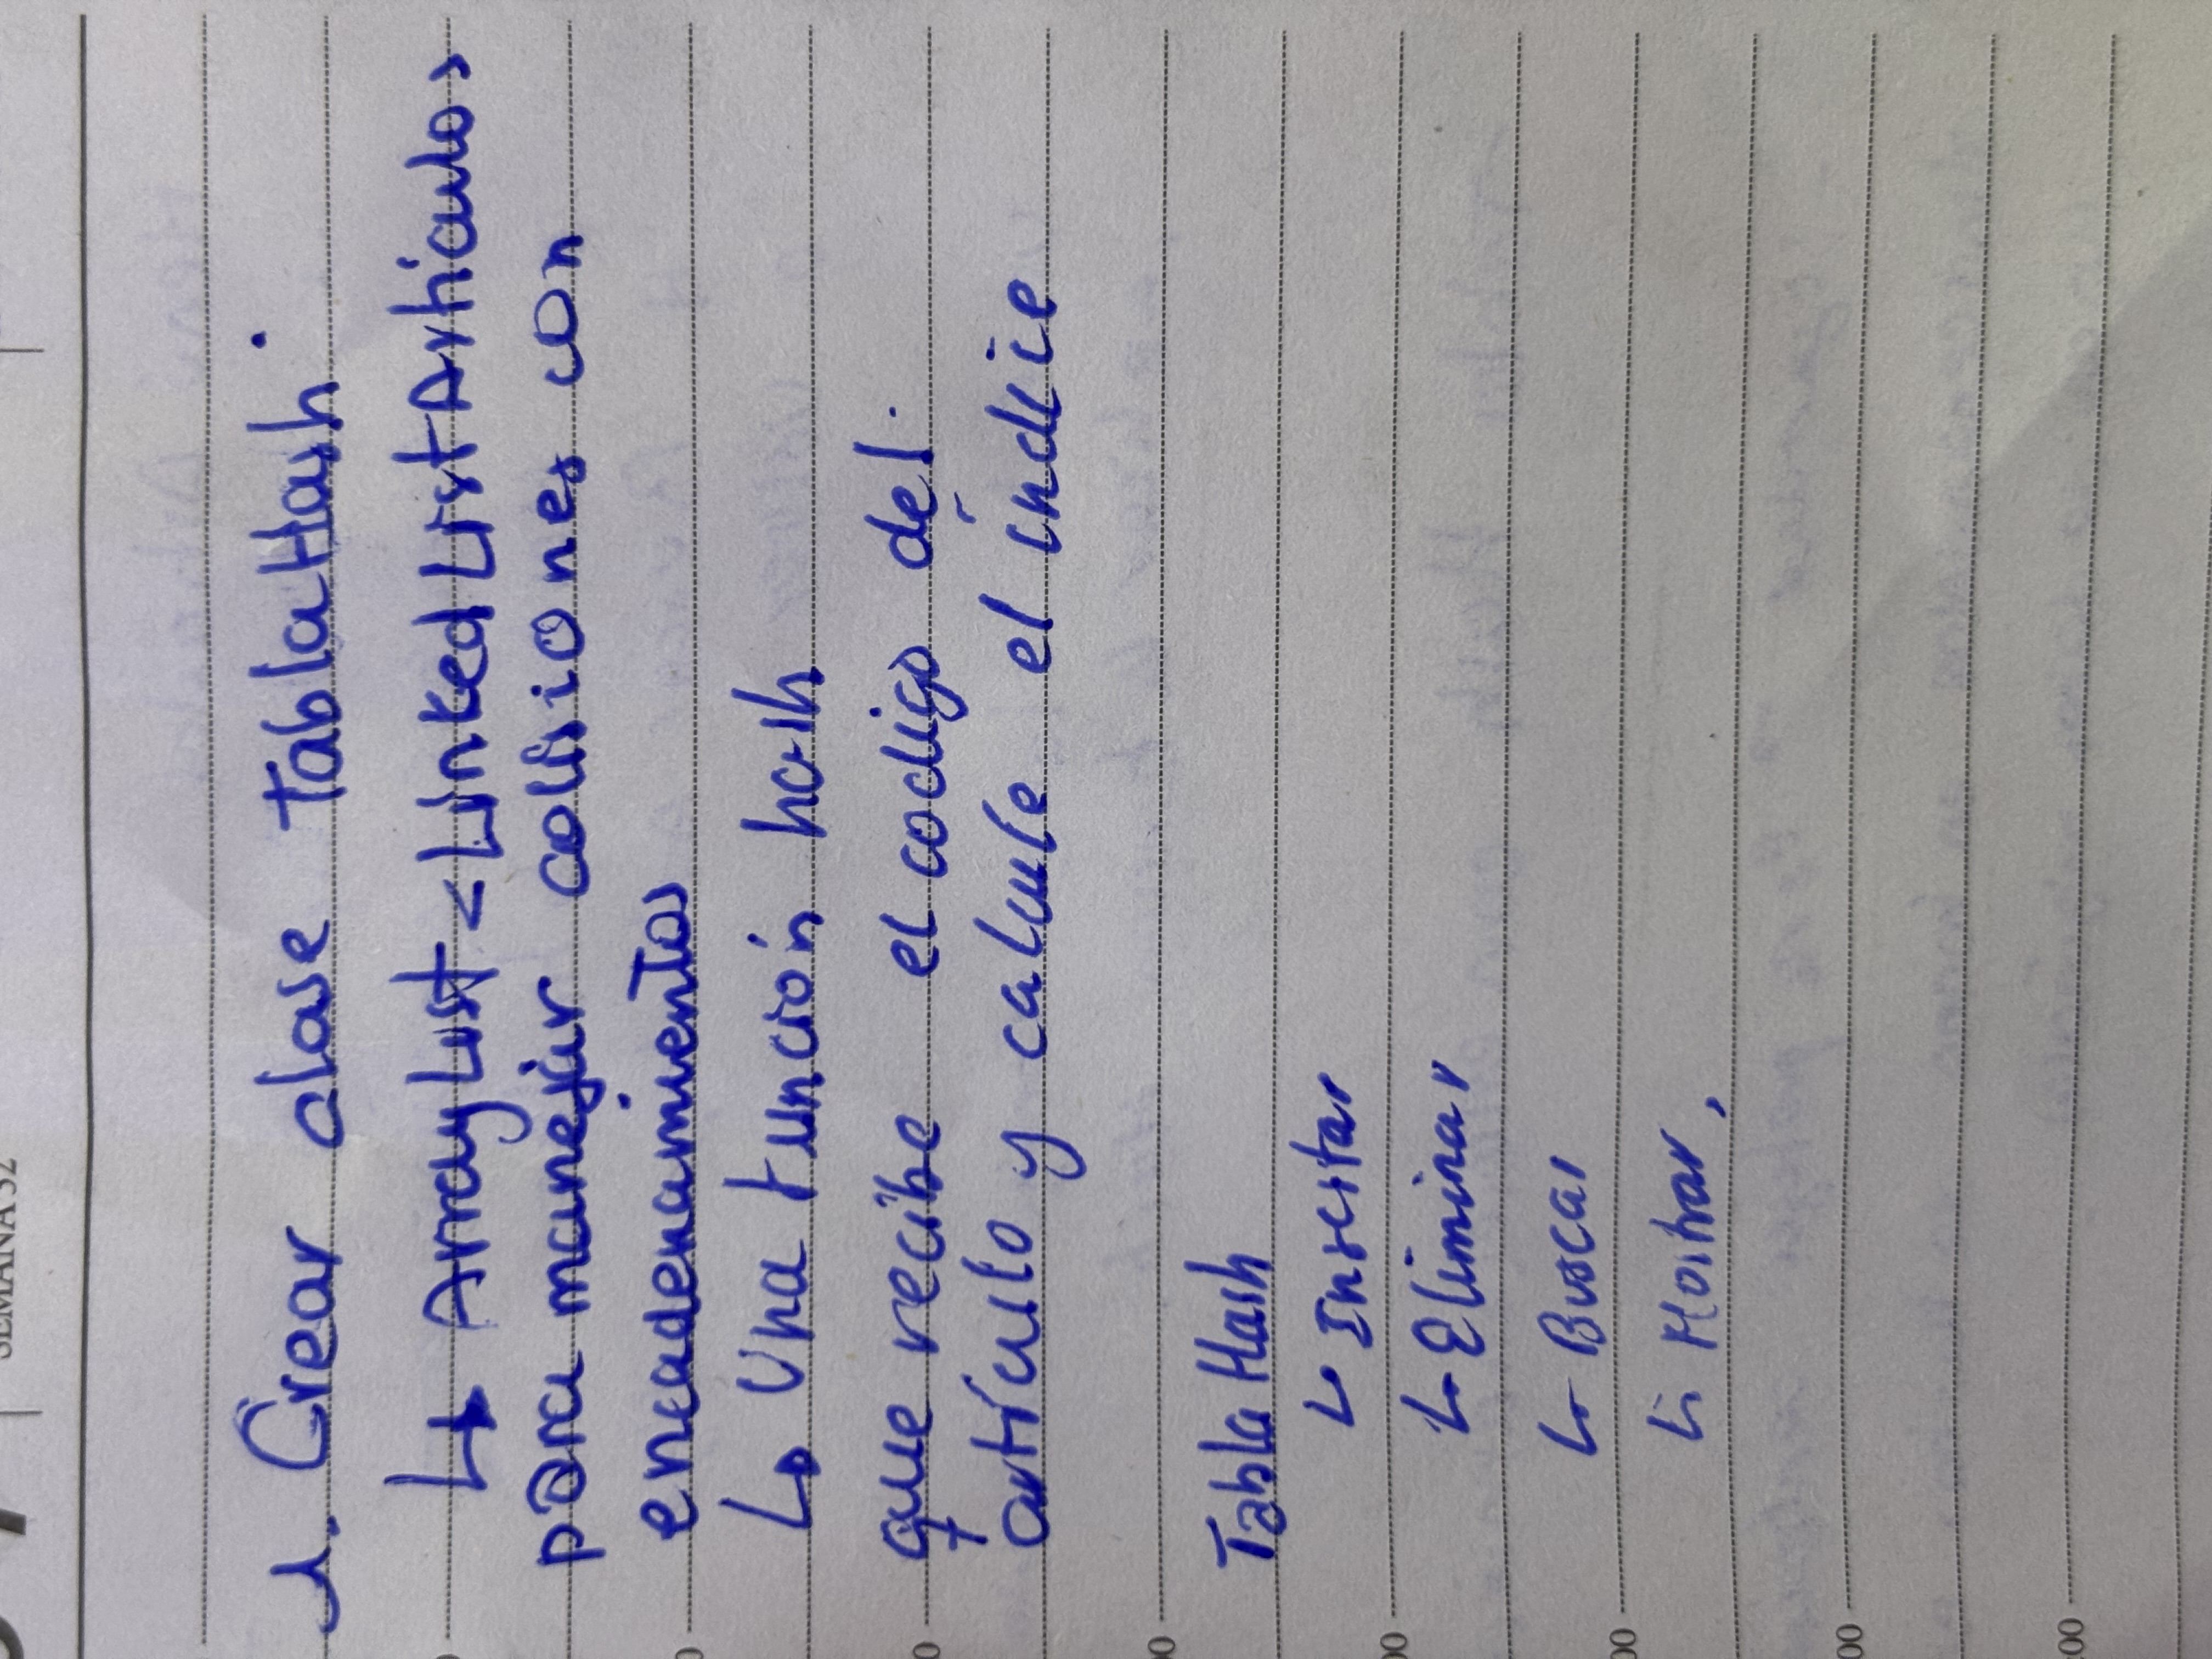 SEMANA 32
1. Crear clase TablaHash
↳ ArrayList <LinkedListArtículos
para manejar colisiones con
encadenamientos
↳ Una función hash
que recibe el codigo del
artículo y calcule el índice
00
Tabla Hash
↳ Insertar
00
↳ Eliminar
↳ Buscar
00
↳ Mostrar,
00
:00